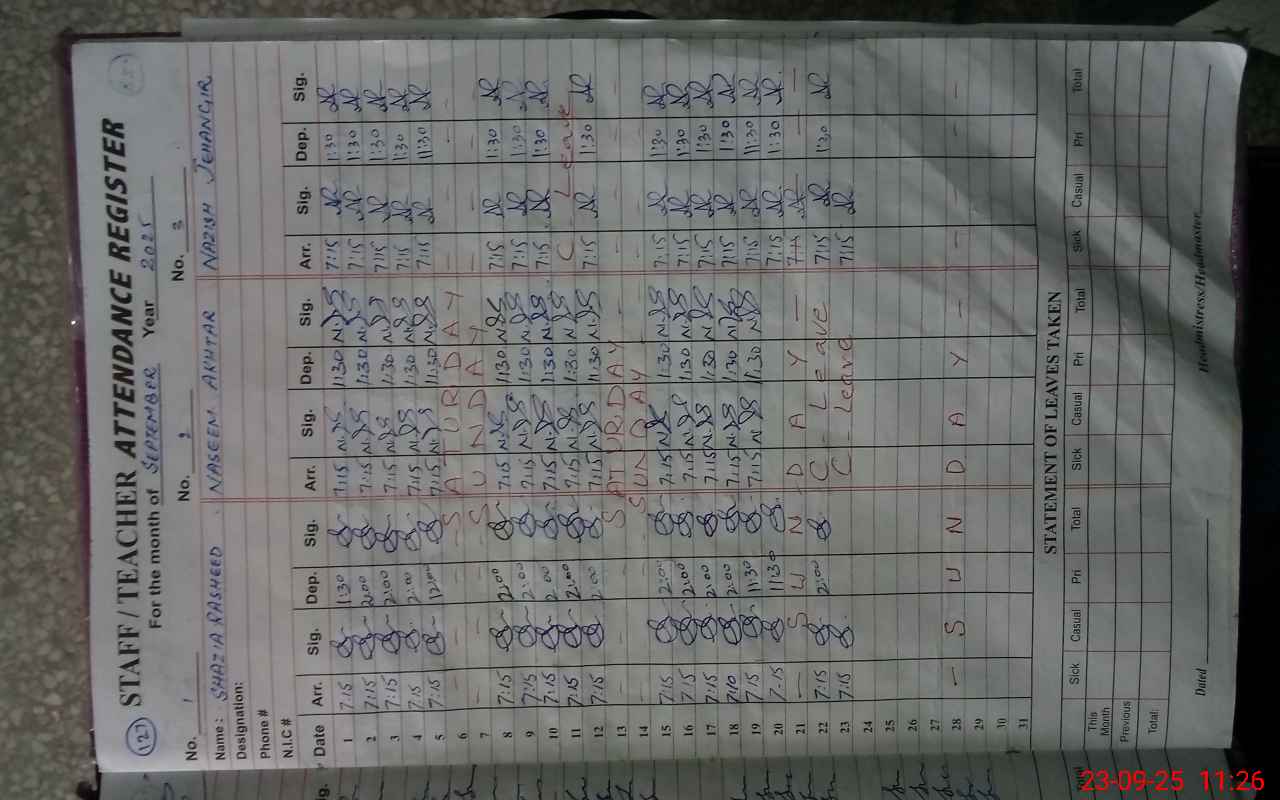 127 STAFF / TEACHER ATTENDANCE REGISTER
For the month of SEPTEMBER Year 2025
No. 1 No. 2 No. 3
Name: SHAZIA RASHEED NASEEM AKHTAR NAZISH JEHANGIR
Designation:
Phone #
N.I.C #
Date Arr. Sig. Dep. Sig. Arr. Sig. Dep. Sig. Arr. Sig. Dep. Sig.
1 7:15 1:30 7:15 1:30 7:15 1:30
2 7:15 2:00 7:15 1:30 7:15 1:30
3 7:15 2:00 7:15 1:30 7:15 1:30
4 7:15 2:00 7:15 1:30 7:15 1:30
5 7:15 12:00 7:15 11:30 7:15 11:30
6 SATURDAY
7 SUNDAY
8 7:15 2:00 7:15 1:30 7:15 1:30
9 7:15 2:00 7:15 1:30 7:15 1:30
10 7:15 2:00 7:15 1:30 7:15 1:30
11 7:15 2:00 7:15 1:30 C Leave
12 7:15 2:00 7:15 11:30 7:15 11:30
13 SATURDAY
14 SUNDAY
15 7:15 2:00 7:15 1:30 7:15 1:30
16 7:15 2:00 7:15 1:30 7:15 1:30
17 7:15 2:00 7:15 1:30 7:15 1:30
18 7:10 2:00 7:15 1:30 7:15 1:30
19 7:15 11:30 7:15 11:30 7:15 11:30
20 7:15 11:30 7:15 11:30
21 SUNDAY
22 7:15 2:00 C Leave 7:15 1:30
23 7:15 C Leave 7:15
24
25
26
27
28 SUNDAY
29
30
31
STATEMENT OF LEAVES TAKEN
Sick Casual Pri Total Sick Casual Pri Total Sick Casual Pri Total
This Month
Previous
Total:
Dated Headmistress/Headmaster
23-09-25 11:26